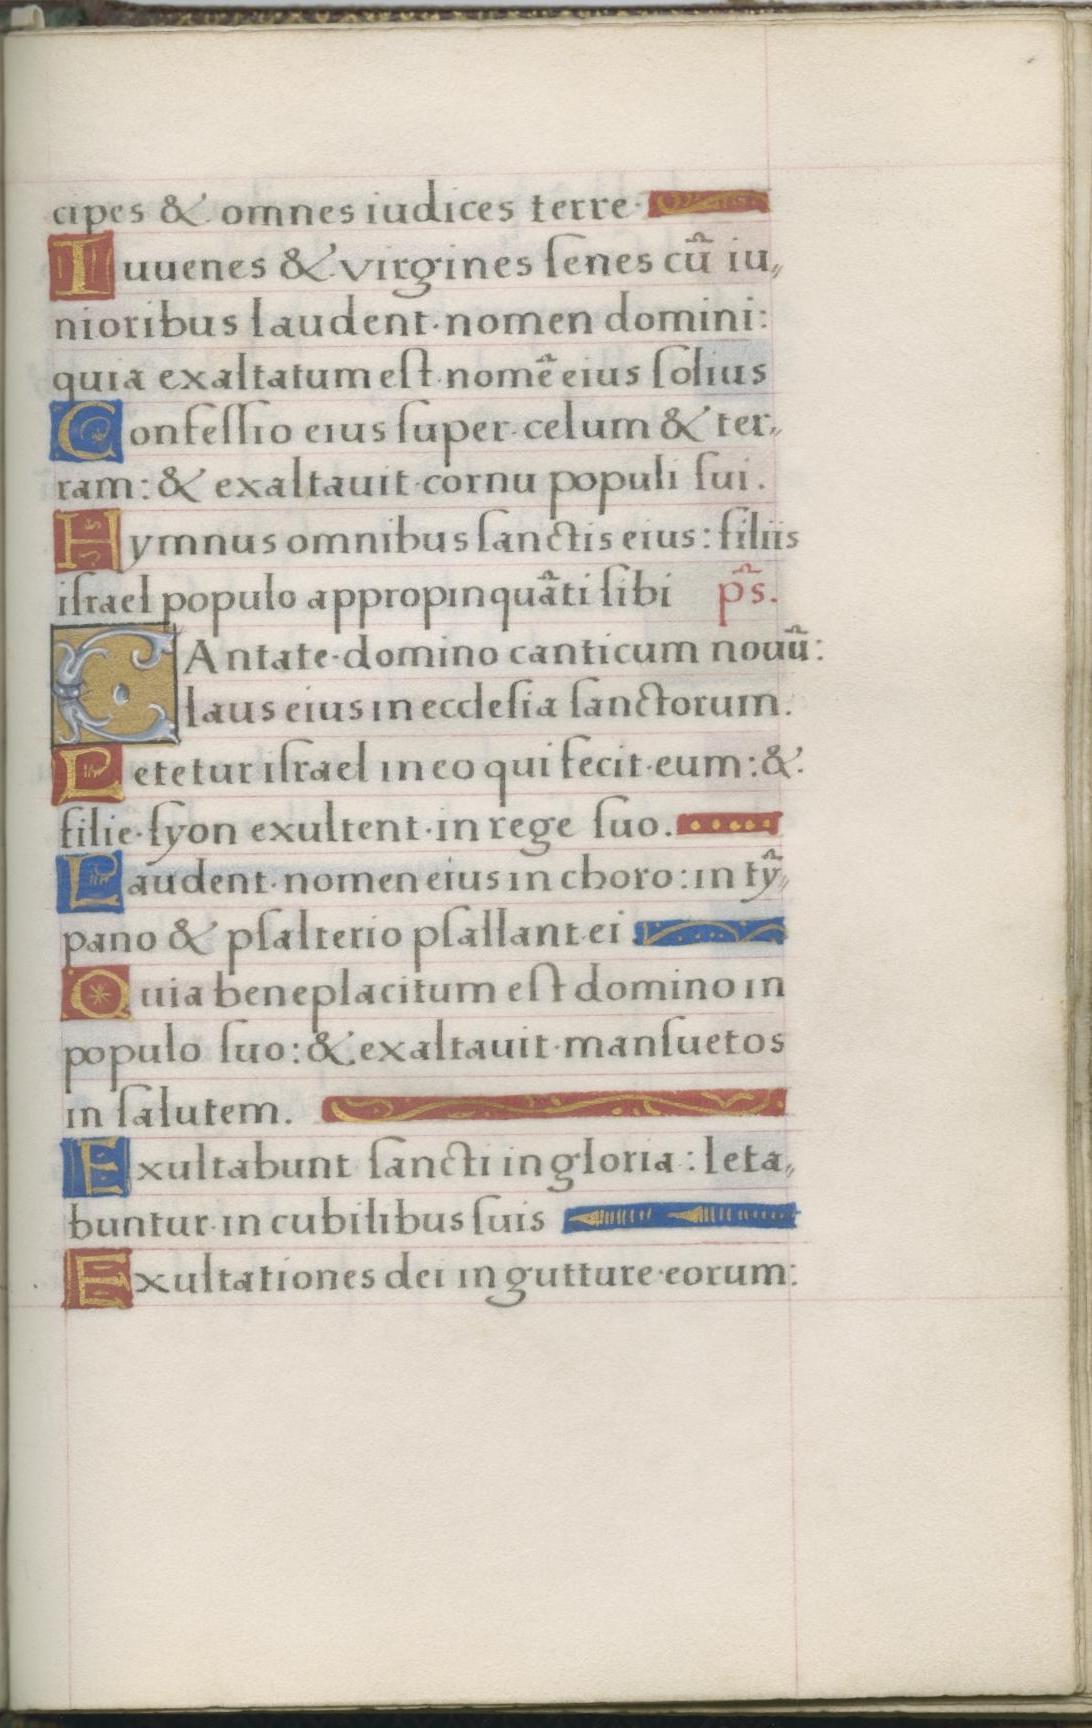 cipes & omnes iudices terre
Iuuenes & virgines ſenes cū iu„
nioribus laudent nomen domini:
quia exaltatum eſt nomē eius ſolius
Confeſſio eius ſuper celum & ter„
ram: & exaltauit cornu populi ſui.
Hymnus omnibus ſanctis eius: filiis
iſrael populo appropinquāti ſibi p̄s.
CAntate domino canticum nouū:
laus eius in eccleſia ſanctorum.
Letetur iſrael in eo qui fecit eum: &
filie ſyon exultent in rege ſuo.
Laudent nomen eius in choro: in tȳ„
pano & pſalterio pſallant ei
Quia beneplacitum eſt domino in
populo ſuo: & exaltauit manſuetos
in ſalutem.
Exultabunt ſancti in gloria: leta„
buntur in cubilibus ſuis
Exultationes dei in gutture eorum: